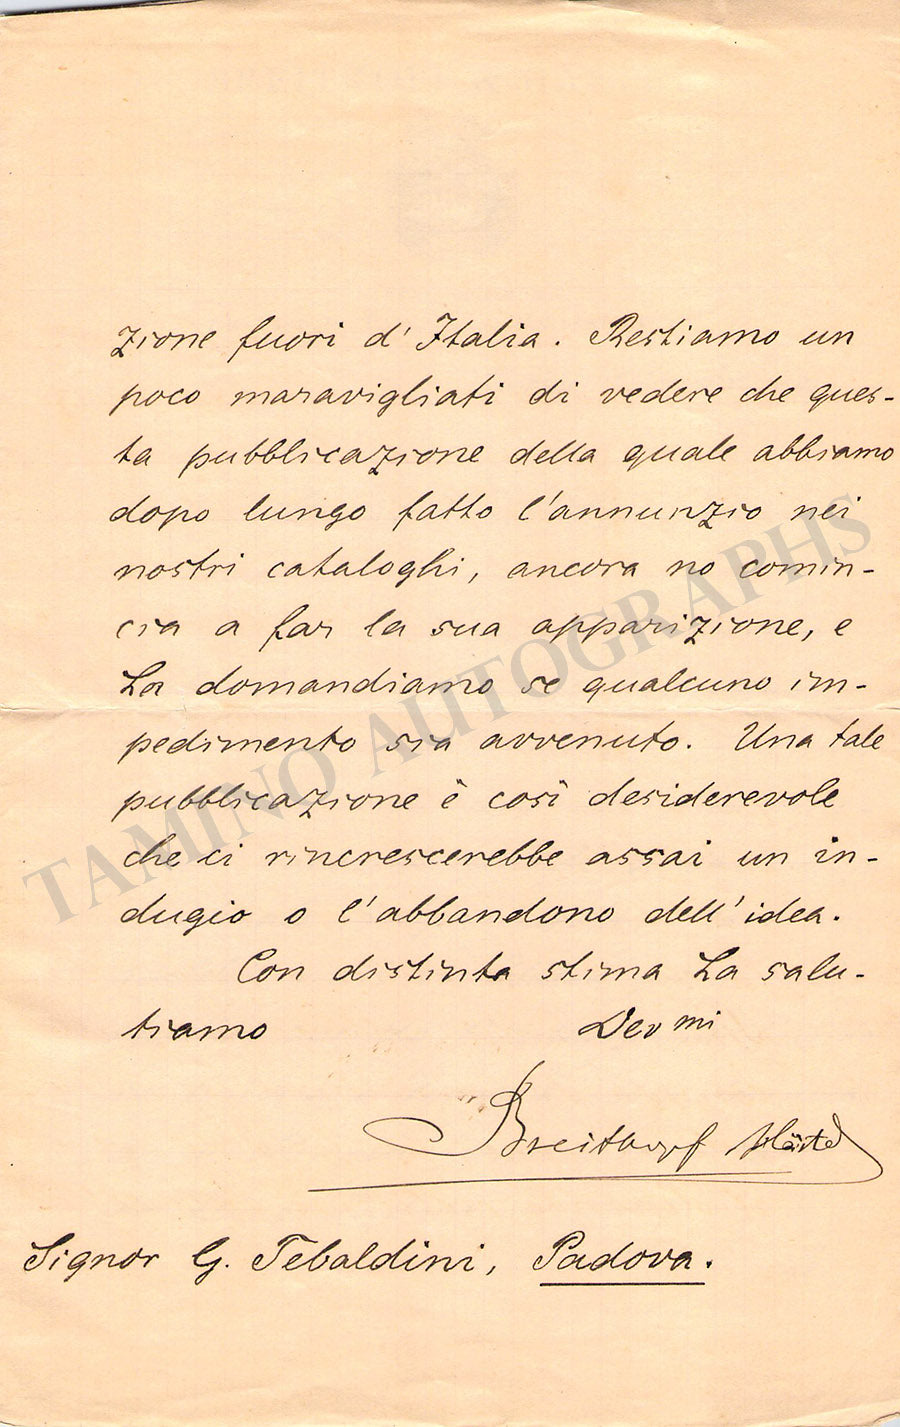 zione fuori d'Italia. Restiamo un
poco maravigliati di vedere che ques-
ta pubblicazione della quale abbiamo
dopo lungo fatto l'annunzio nei
nostri cataloghi, ancora no comin-
cia a far la sua apparizione, e
La domandiamo se qualcuno im-
pedimento sia avvenuto. Una tale
pubblicazione è così desiderevole
che ci rincrescerebbe assai un in-
dugio o l'abbandono dell'idea.
Con distinta stima La salu-
tiamo Devmi
Breitkopf Härtel
Signor G. Tebaldini, Padova.
TAMINO AUTOGRAPHS